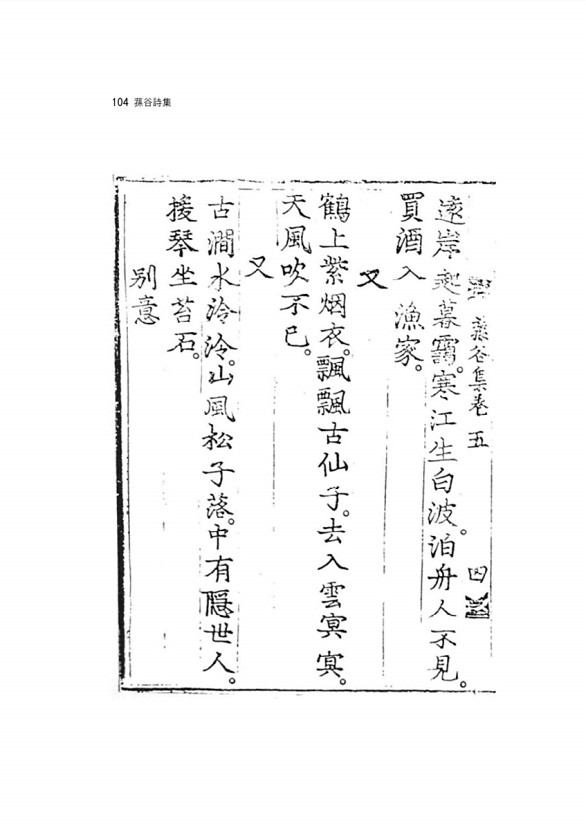 104 蓀谷詩集
蓀谷集卷五
四
遠岸起暮靄。寒江生白波。泊舟人不見。
買酒入漁家。
又
鶴上紫烟衣。飄飄古仙子。去入雲冥冥。
天風吹不已。
又
古澗水泠泠。山風松子落。中有隱世人。
援琴坐苔石。
別意